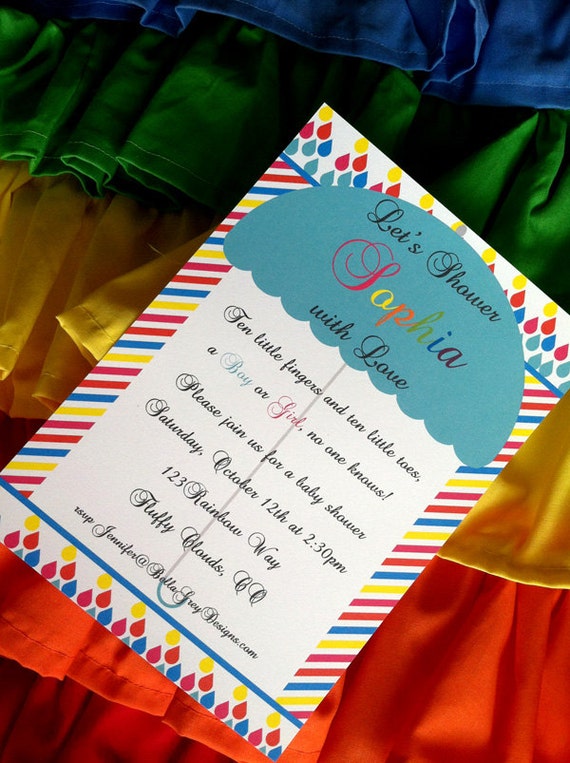 Let's Shower
Sophia
with Love
Ten little fingers and ten little toes,
a Boy or Girl, no one knows!
Please join us for a baby shower
Saturday, October 12th at 2:30pm
123Rainbow Way
Fluffy Clouds, CO
rsvp Jennifer@BellaGreyDesigns.com